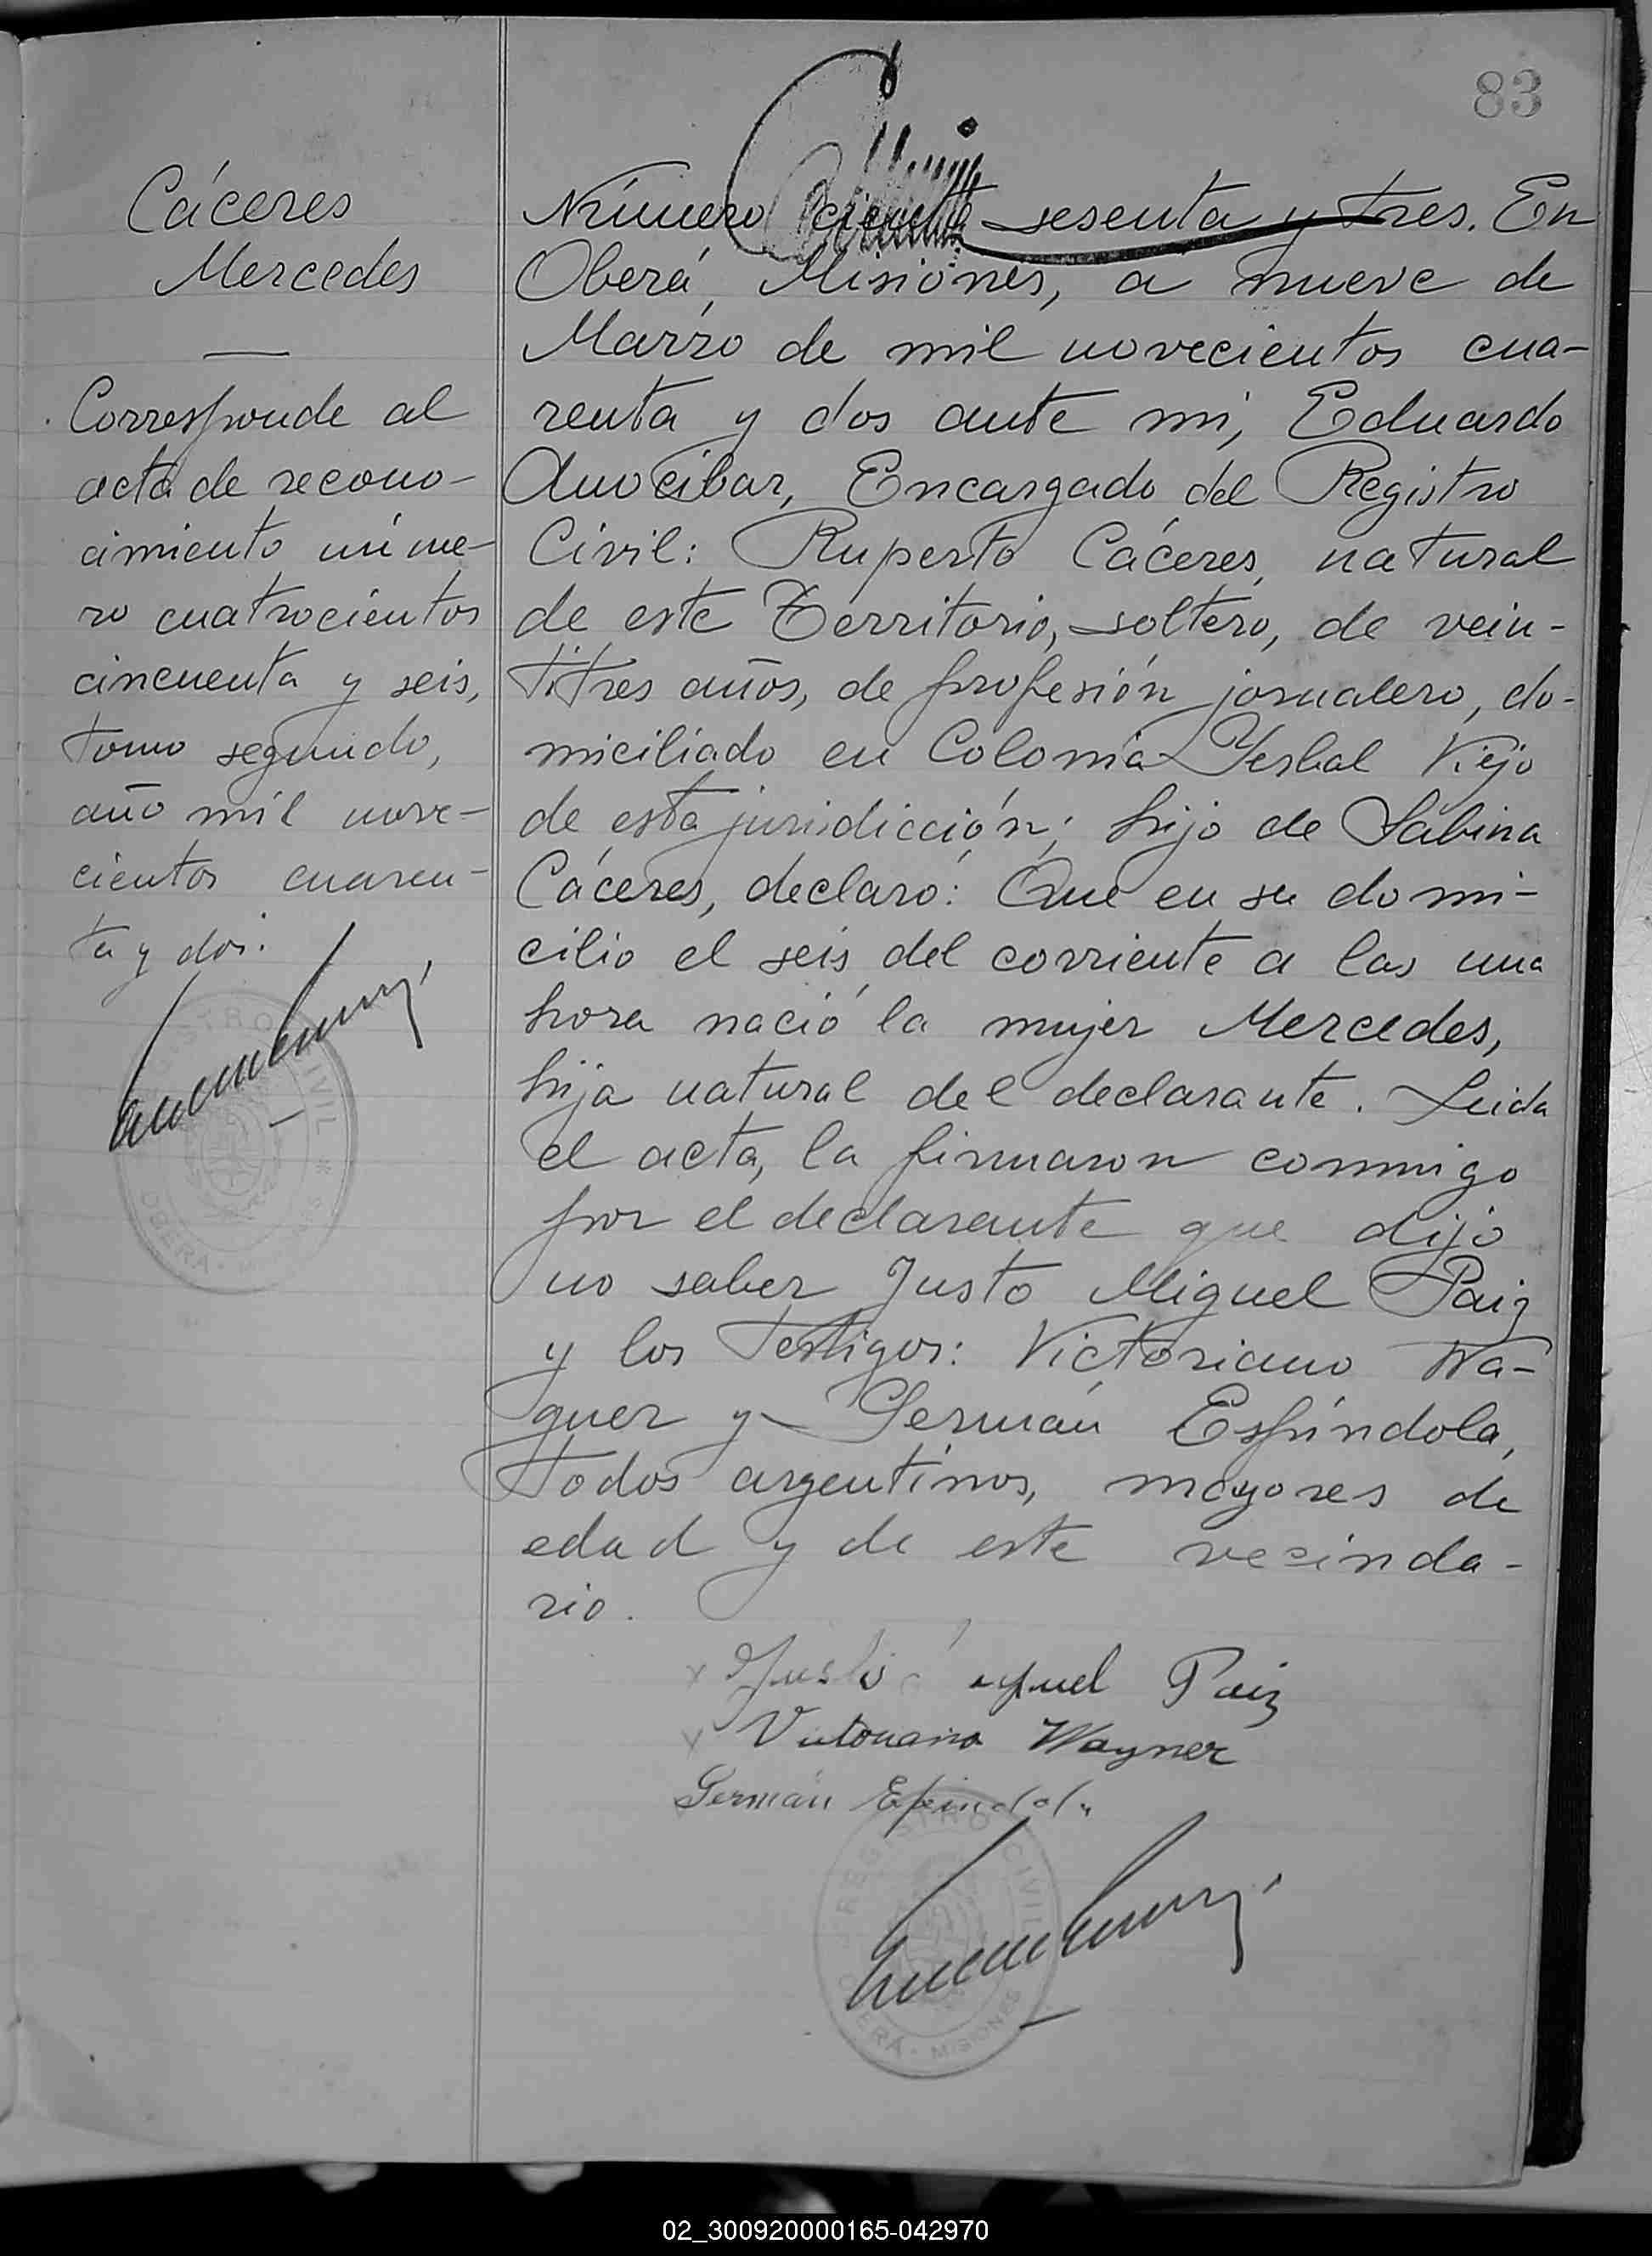 83
Cáceres
Mercedes
Corresponde al
acta de recono-
cimiento núme-
ro cuatrocientos
cincuenta y seis,
tomo segundo,
año mil nove-
cientos cuaren-
ta y dos.
REGISTRO CIVIL * OBERÁ - MISIONES
Número ciento sesenta y tres. En
Oberá, Misiones, a nueve de
Marzo de mil novecientos cua-
renta y dos ante mi, Eduardo
Anocibar, Encargado del Registro
Civil: Ruperto Cáceres, natural
de este Territorio, soltero, de vein-
titres años, de profesión jornalero, do-
miciliado en Colonia Yerbal Viejo
de esta jurisdicción; hijo de Sabina
Cáceres, declaró: Que en su domi-
cilio el seis del corriente a las una
hora nació la mujer Mercedes,
hija natural del declarante. Leida
el acta, la firmaron conmigo
por el declarante que dijo
no saber Justo Miguel Paiz
y los testigos: Victoriano Wa-
gner y Germán Espíndola,
todos argentinos, mayores de
edad y de este vecinda-
rio.
x Justo Miguel Paiz
Victoriano Wagner
Germán Espindola
REGISTRO CIVIL OBERÁ - MISIONES
02_300920000165-042970